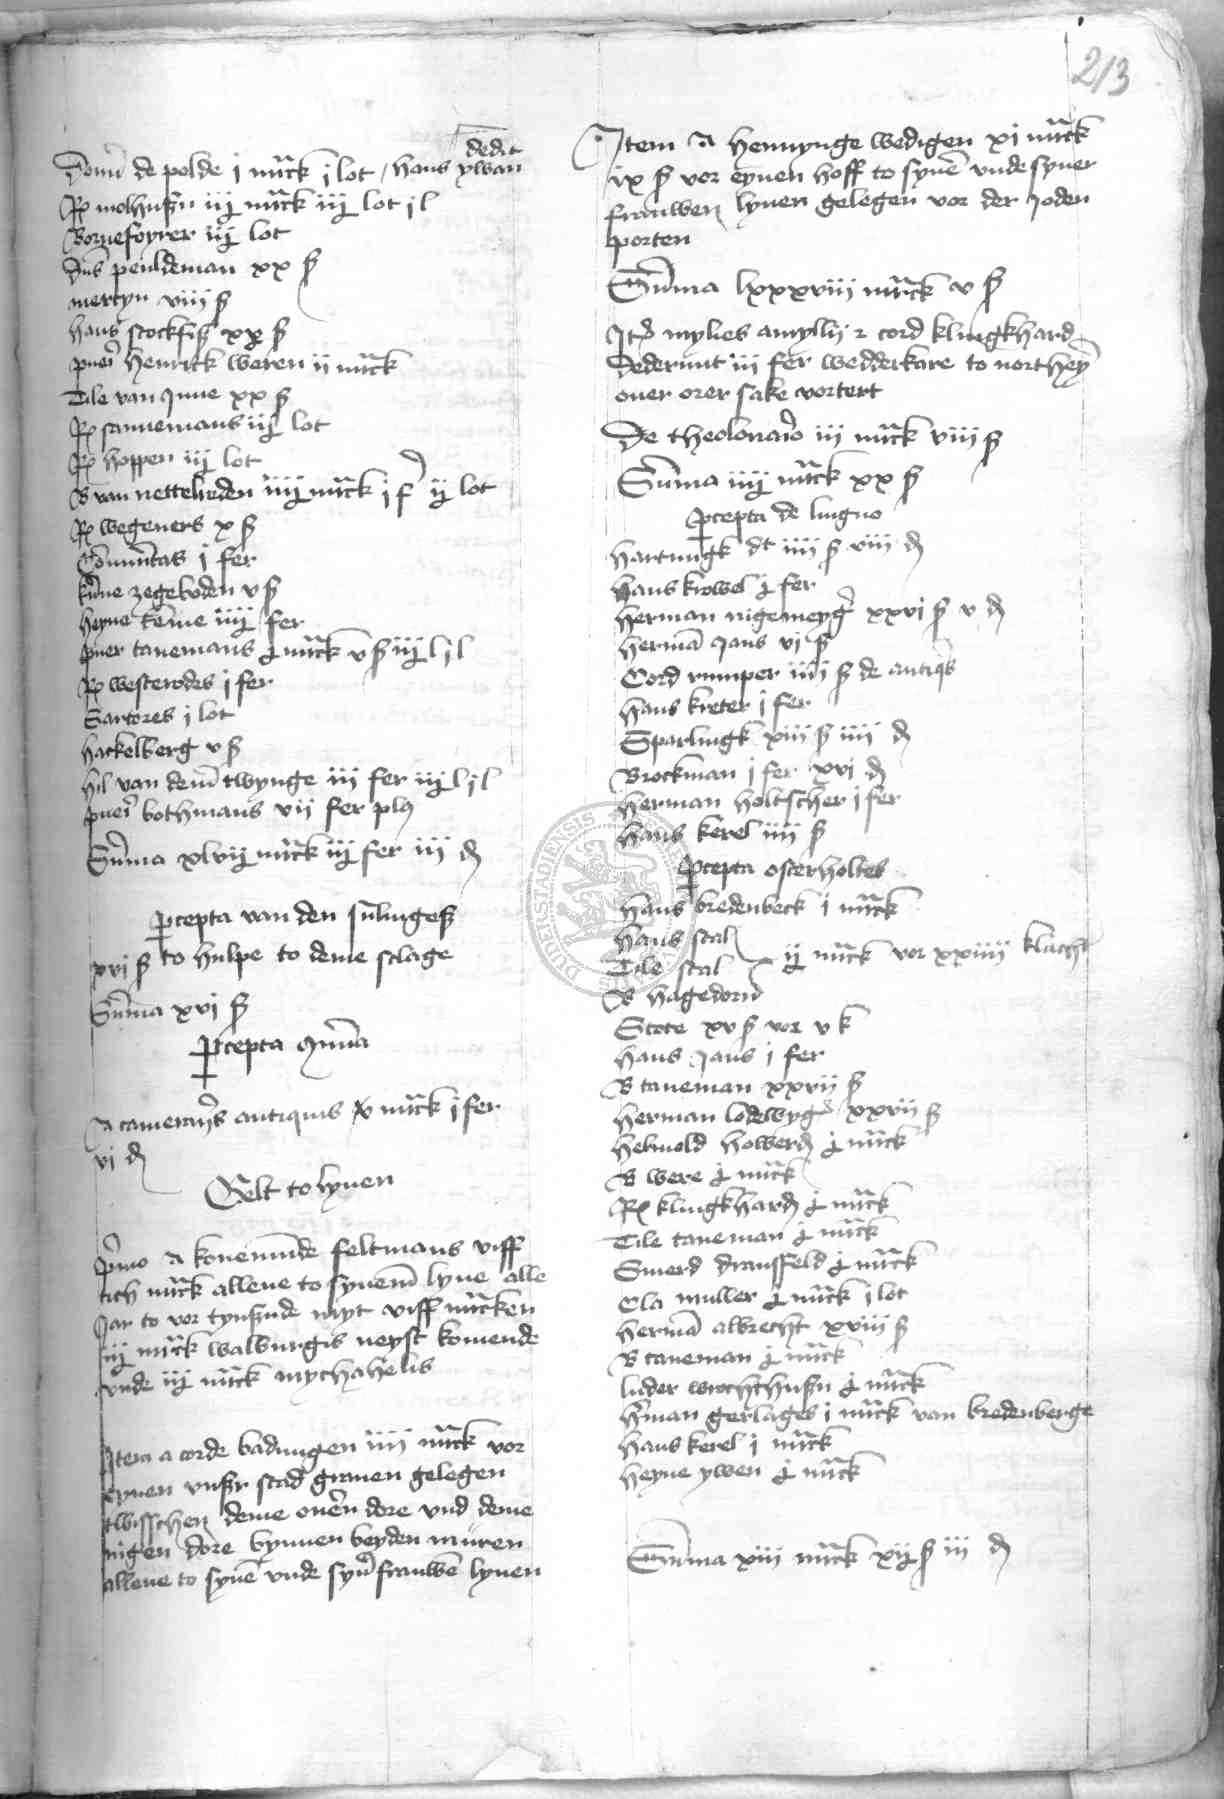 213
dedit
Domina de polde j mrck j lot / hans ywan
Rel molhusen iij mrck iij lot j l
Bornefoyrer iij lot
Dns peuldeman xx ß
mertyn viij ß
hans stockfisz xx ß
pueri henrick weren ij mrck
Tile van Jnne xx ß
Rel sannemans iij lot
Rel hoppen iij lot
B van netteleden iiij mrck j f ij lot
Rel wegeners x ß
Communitas j fer
kune zegeboden v ß
heyne teme iiij fer
puer tanemans j mrck v ß iij l j l
Rel westerodes j fer
Sartores j lot
hackelberg v ß
hil van dem twynge iij fer iij l j l
pueri bothmans vij fer pl9
Summa xlvij mrck iij fer iij d
Percepta van den sulingesz
xvj ß to hulpe to deme sclage
Summa xvj ß
Percepta Jnnua
A camerariis antiquis x mrck j fer
vj d
Gelt to lyuen
Primo a konemunde feltmans viff
tich mrck allene to synem lyue alle
Jar to vor tynsznde myt viff mrcken
iij mrck walburgis neyst komende
vnde iij mrck mychahelis
Item a corde badungen iiij mrck vor
eynen vnszr stad grauen gelegen
twisschen deme ouern dore vnd deme
nigen dore bynnen beyden muren
allene to syne vnde syner frauwen lyuen
Item A hennynge wedigen xj mrck
ix ß vor eynen hoff to syne vnde syner
frauwen lyuen gelegen vor der Joden
porten
Summa lxxxviij mrck v ß
Jtem mylies amylij z cord klingkhard
dederunt iij fer wedderkare to northeym
ouer orer sake vortert
De theolonario iij mrck viij ß
Summa iiij mrck xx ß
Percepta de lingno
hartungk dt iiij ß viij d
hans krowel j fer
herman nigemeyger xxvj ß v d
herman Jans vj ß
Cord rumper iiij ß de antiquis
hans kreter j fer
Sparlingk xiij ß iiij d
Brockman j fer xvj d
herman holtscher j fer
hans kerel iiij ß
Percepta osterholtes
hans bredenbeck j mrck
hans stal
Tile stal ij mrck vor xxiiij klacht
B hagedorn
Stote xv ß vor v k
hans Jans j fer
B taneman xxvij ß
herman lodewyges xxvij ß
helmold howerd j mrck
B were j mrck
Rel klingkhard j mrck
Tile taneman j mrck
Smerd dransfeld j mrck
Cla muller j mrck j lot
herman albrecht xviij ß
B taneman j mrck
luder wochthuszn j mrck
herman gerlages j mrck van bredenberge
hans kerel j mrck
heyne ywen j mrck
Summa xiij mrck xij ß iij d